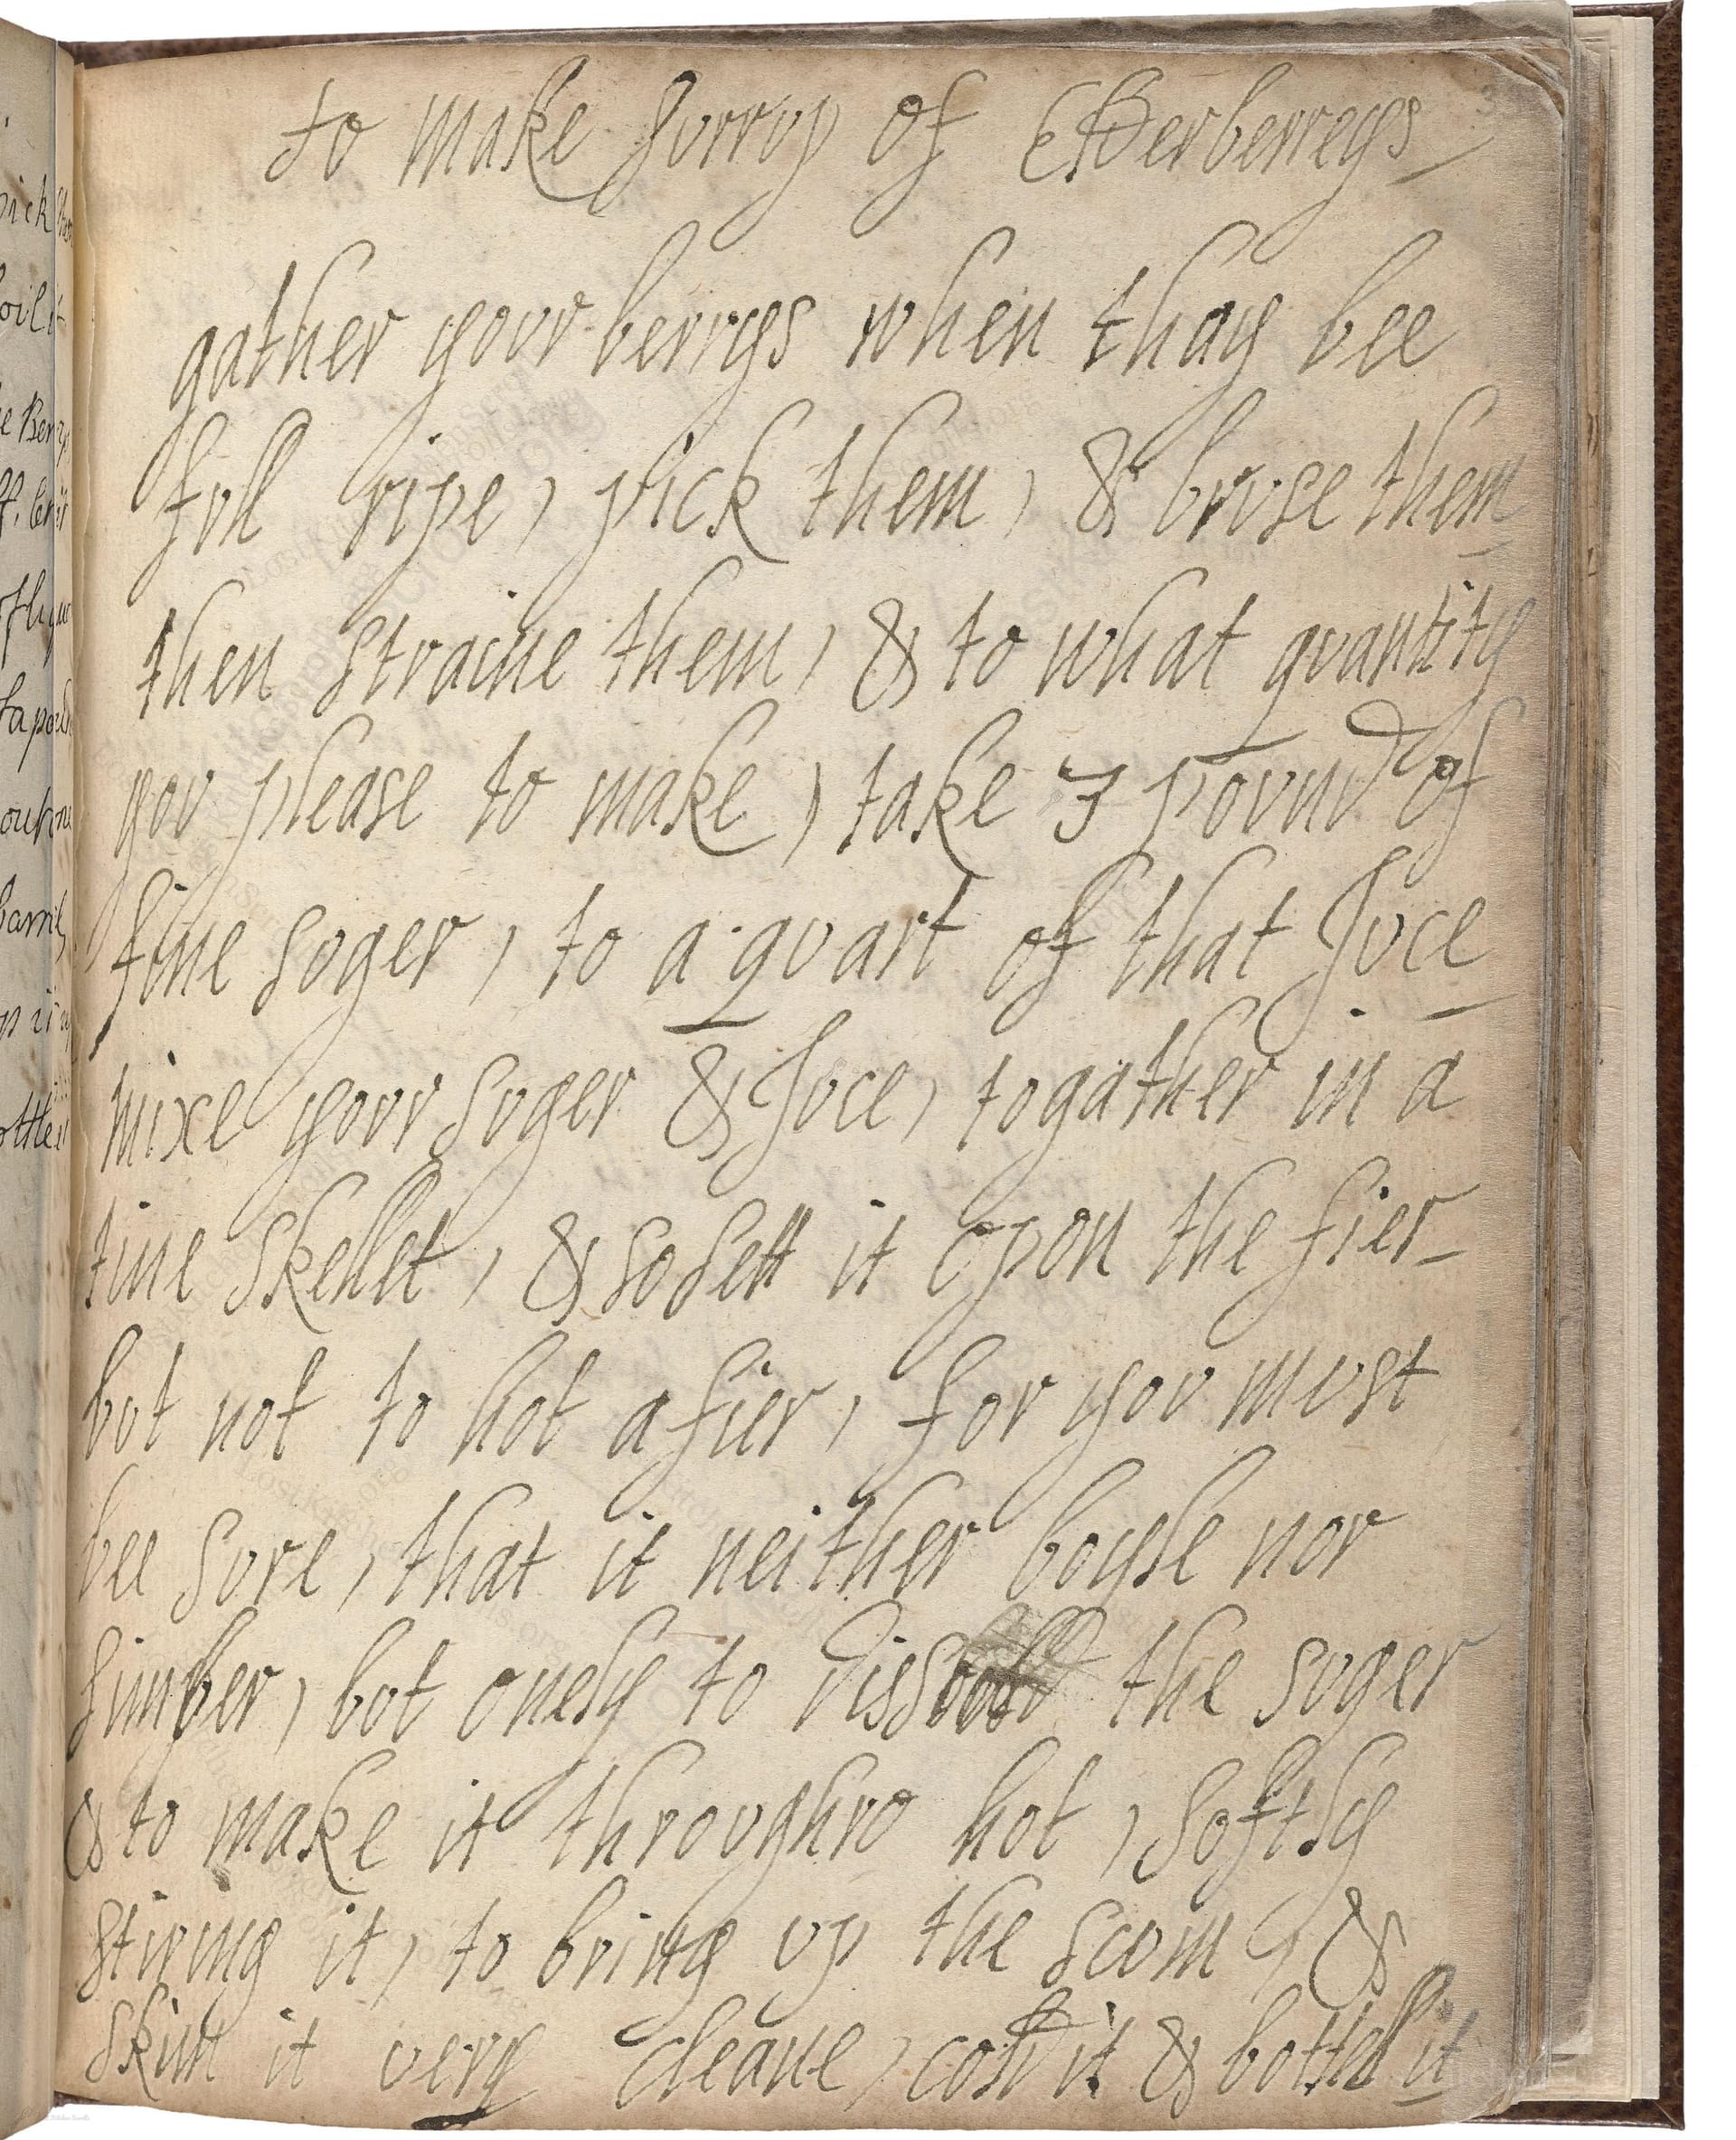 to make surrop of Elderberreys
gather yovr berrys when thay bee
fvll ripe, pick them, & brvse them
then straine them, & to what qvantity
yov please to make, take 3 povnd of
fine soger, to a qvart of that Jvce
mixe yovr svger & Jvce, togather in a
tine skellet, & so sett it vpon the fier
bot not to hot a fier, for yov mvst
bee svre, that it neither boyle nor
simber, bot onely to the svger
& to make it throvghro hot, softly
stiring it, to bring vp the scvm, &
skim it very cleane, cold it & bottel it